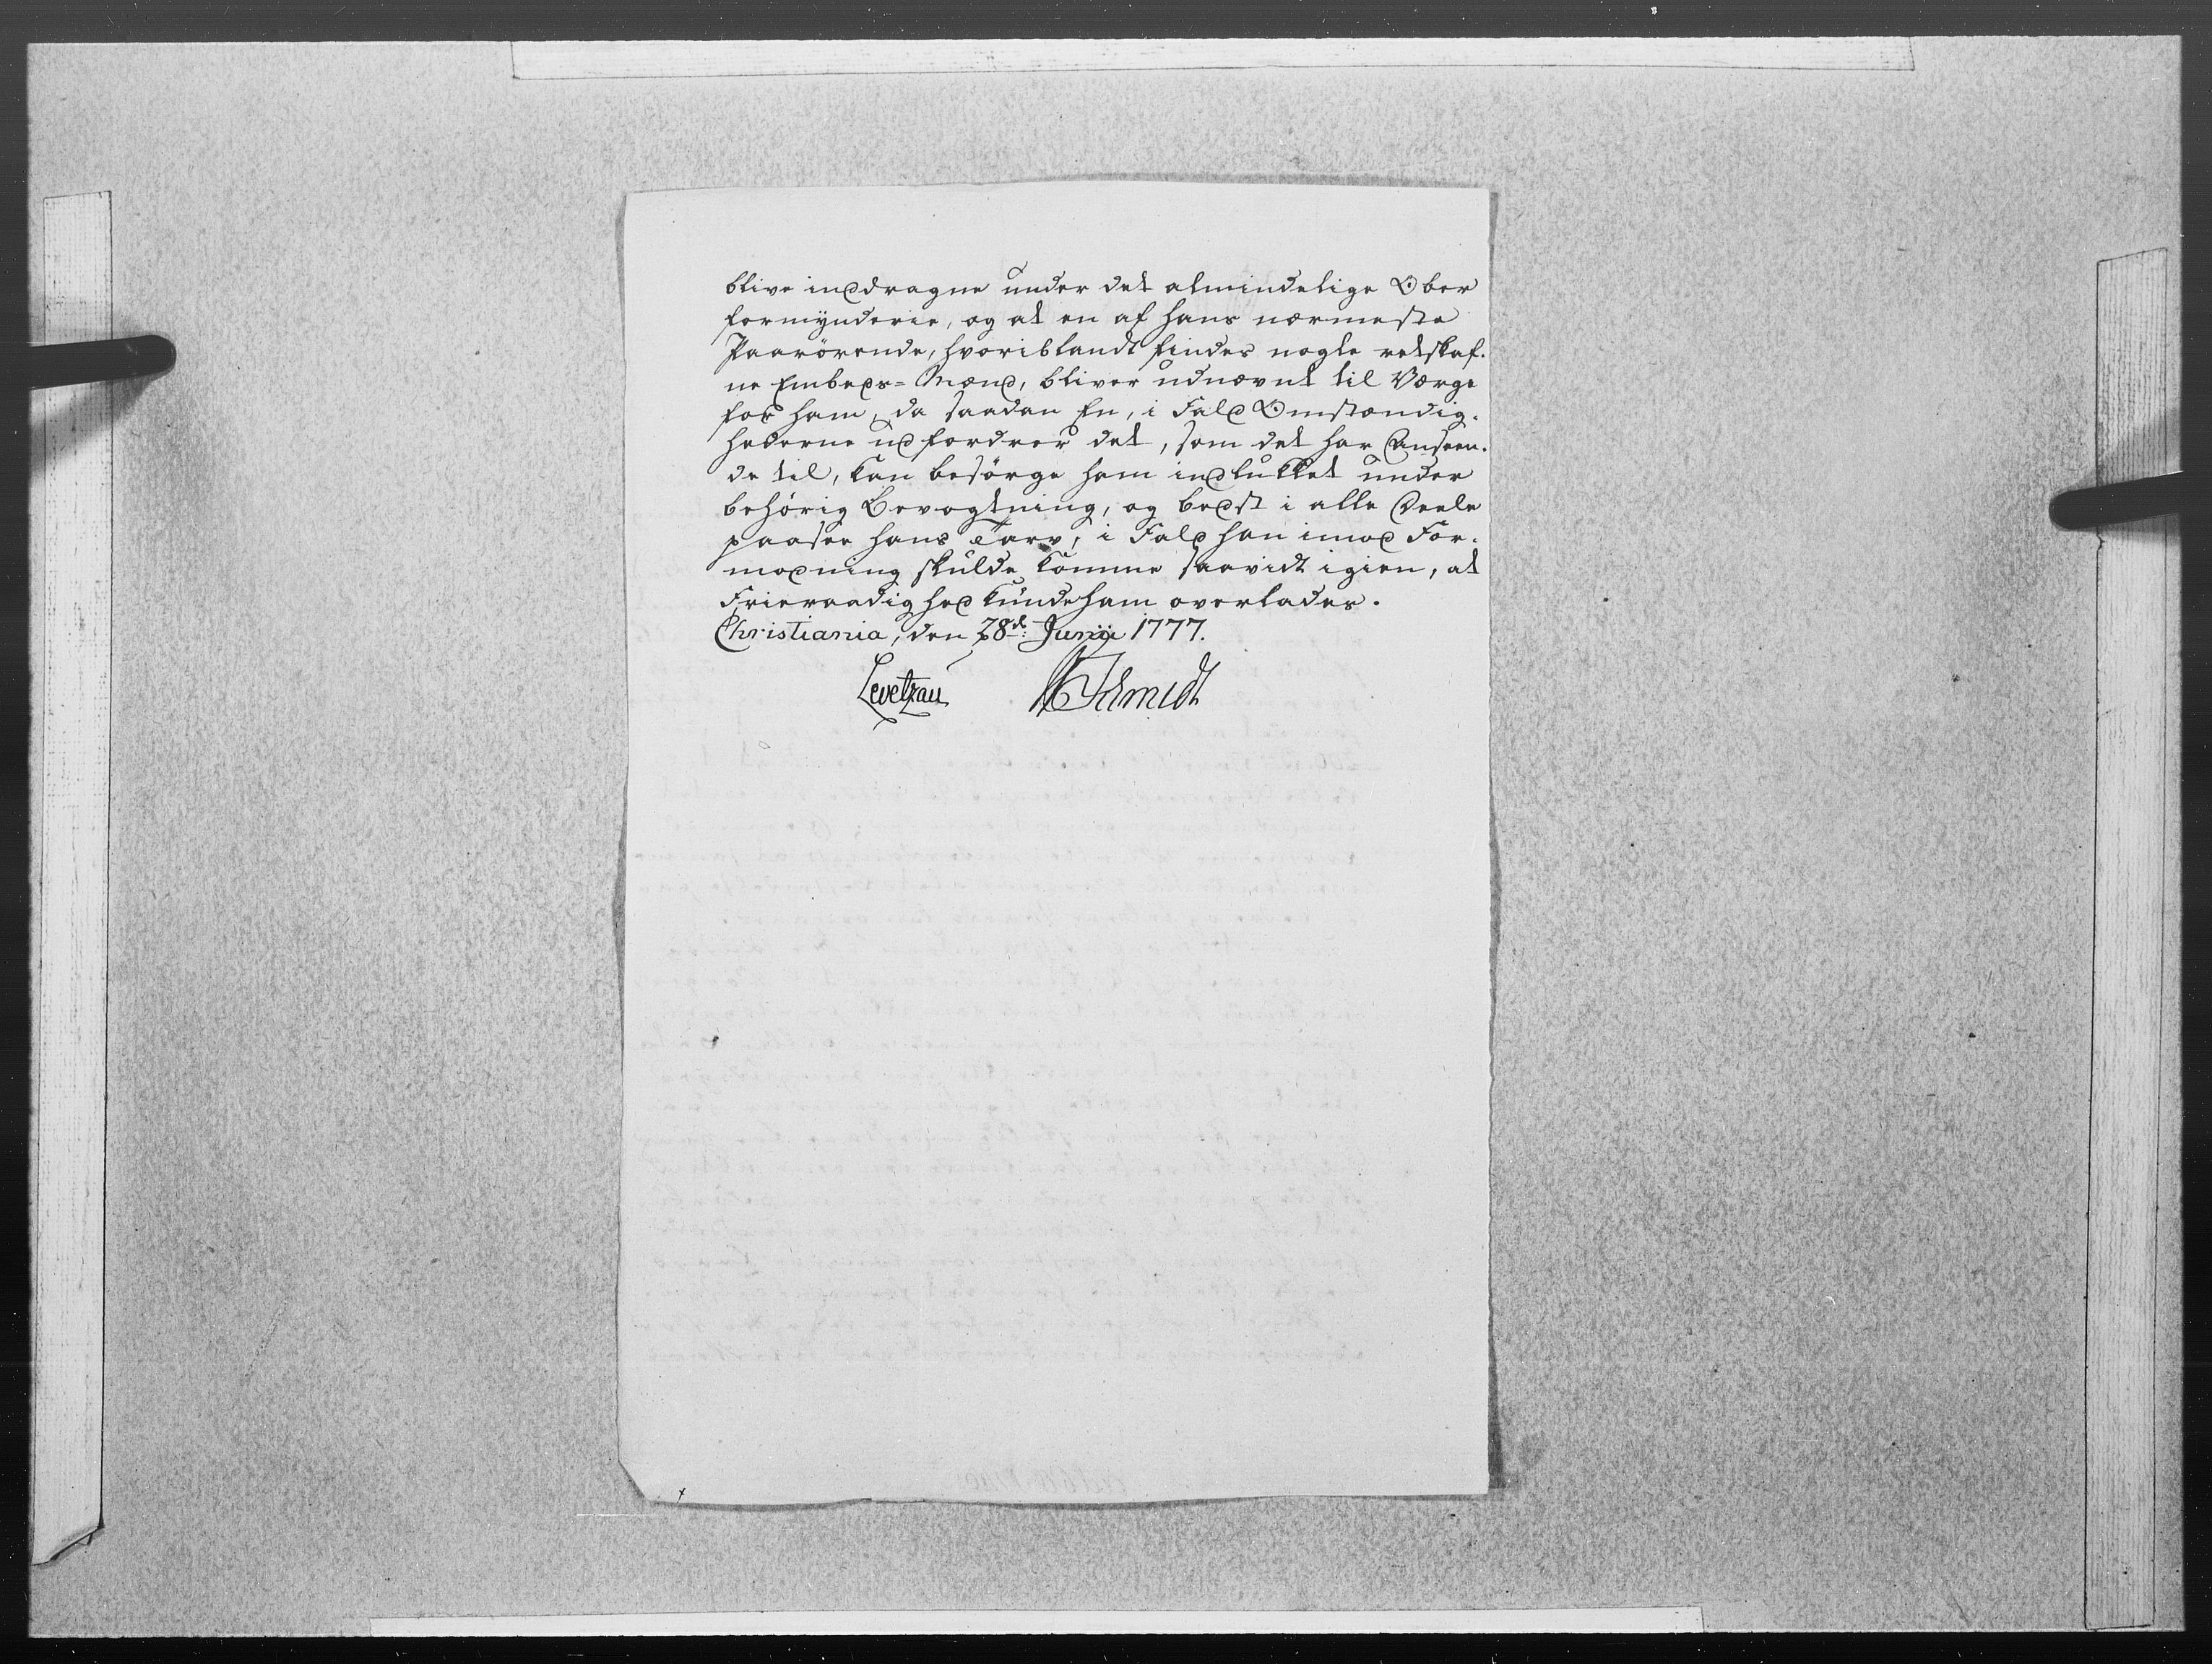 blive inddragne under det almindelige Ober
formynderie, og at en af hans nærmeste
Paarørende, hvoriblandt findes nogle retskaf-
ne Embeds-Mænd, bliver udnævnt til Værge
for ham, da saadan En, i Fald Omstændig-
hederne udfordrer det, som det har Anseen-
de til, kan besørge ham indlukket under
behørig Bevogtning, og bedst i alle Deele
paasee hans Tarv, i Fald han imod For-
modning skulde komme saavidt igien, at
Frieraadighed kunde ham overlades.
Christiania, den 28d: Junii 1777.
Levetzau Schmidt